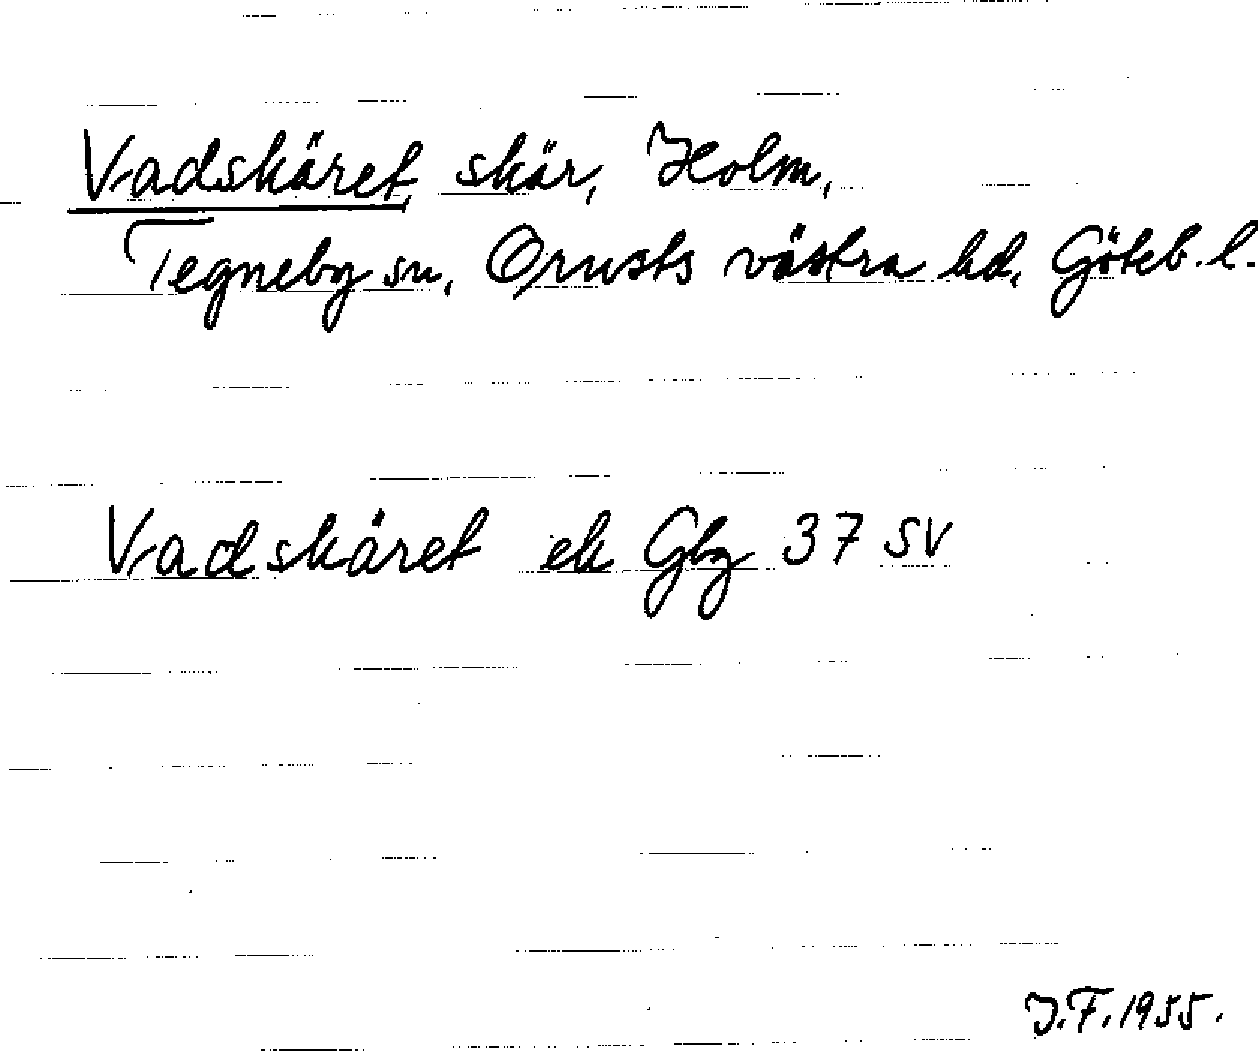 Vadskäret, skär, Holm,
Tegneby sn, Orusts västra hd, Göteb. l.
Vadskäret ek Gbg 37 SV
J.F. 1955.